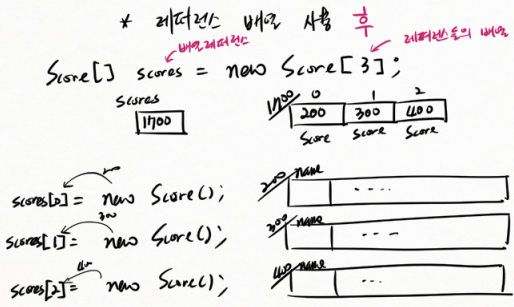 * 레퍼런스 배열 사용 후
배열레퍼런스
레퍼런스들의 배열
Score[] scores = new Score[3];
scores
1700
1700
0 1 2
200 300 400
Score Score Score
200
scores[0] = new Score();
200 name
....
300
scores[1] = new Score();
300 name
...
400
scores[2] = new Score();
400 name
...